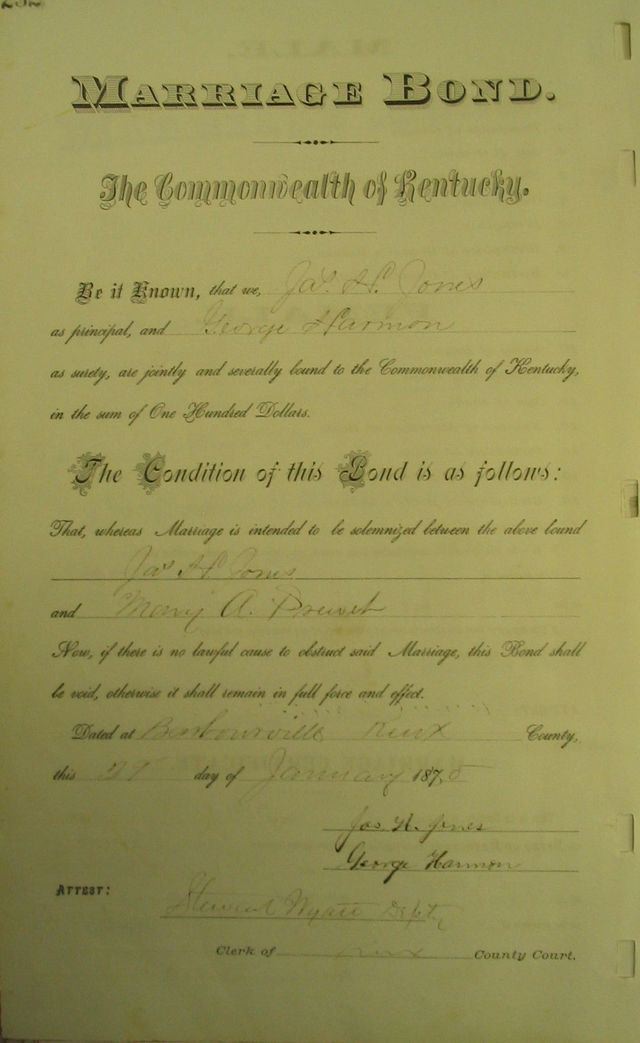 MARRIAGE BOND.
The Commonwealth of Kentucky.
Be it Known, that we, Jas. H. Jones
as principal, and George Harmon
as surety, are jointly and severally bound to the Commonwealth of Kentucky,
in the sum of One Hundred Dollars.
The Condition of this Bond is as follows:
That, whereas Marriage is intended to be solemnized between the above bound
Jas H Jones
and Mary A. Prewet
Now, if there is no lawful cause to obstruct said Marriage, this Bond shall
be void, otherwise it shall remain in full force and effect.
Dated at Barbourville Knox County,
this 29 day of January 1875
Jas H. Jones
George Harmon
ATTEST:
Stewart Wyatt Depty
Clerk of Knox County Court.